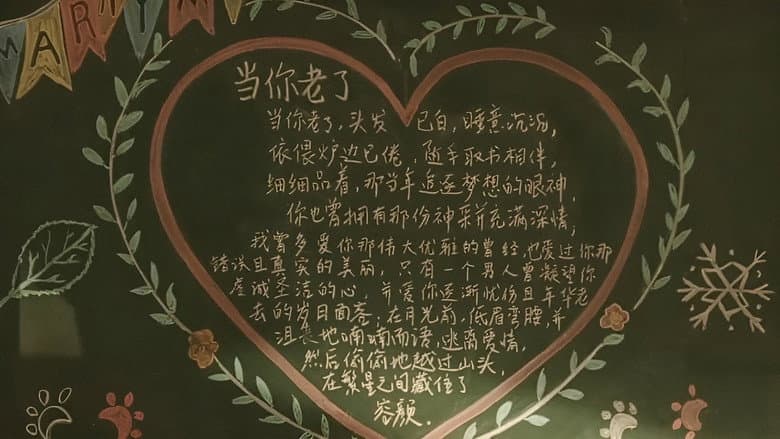 MARRY M
当你老了
当你老了,头发 已白,睡意沉沉,
依偎炉边已倦,随手取书相伴,
细细品着,那当年追逐梦想的眼神,
你也曾拥有那份神采并充满深情,
我曾多爱你那伟大优雅的曾经,也爱过你那
错误且真实的美丽,只有一个男人曾凝望你
虔诚圣洁的心,并爱你逐渐忧伤且年华老
去的岁日面容,在月光前,低眉弯腰,并
沮丧地喃喃而语,逃离爱情,
然后偷偷地越过山头,
在繁星之间藏住了
容颜.